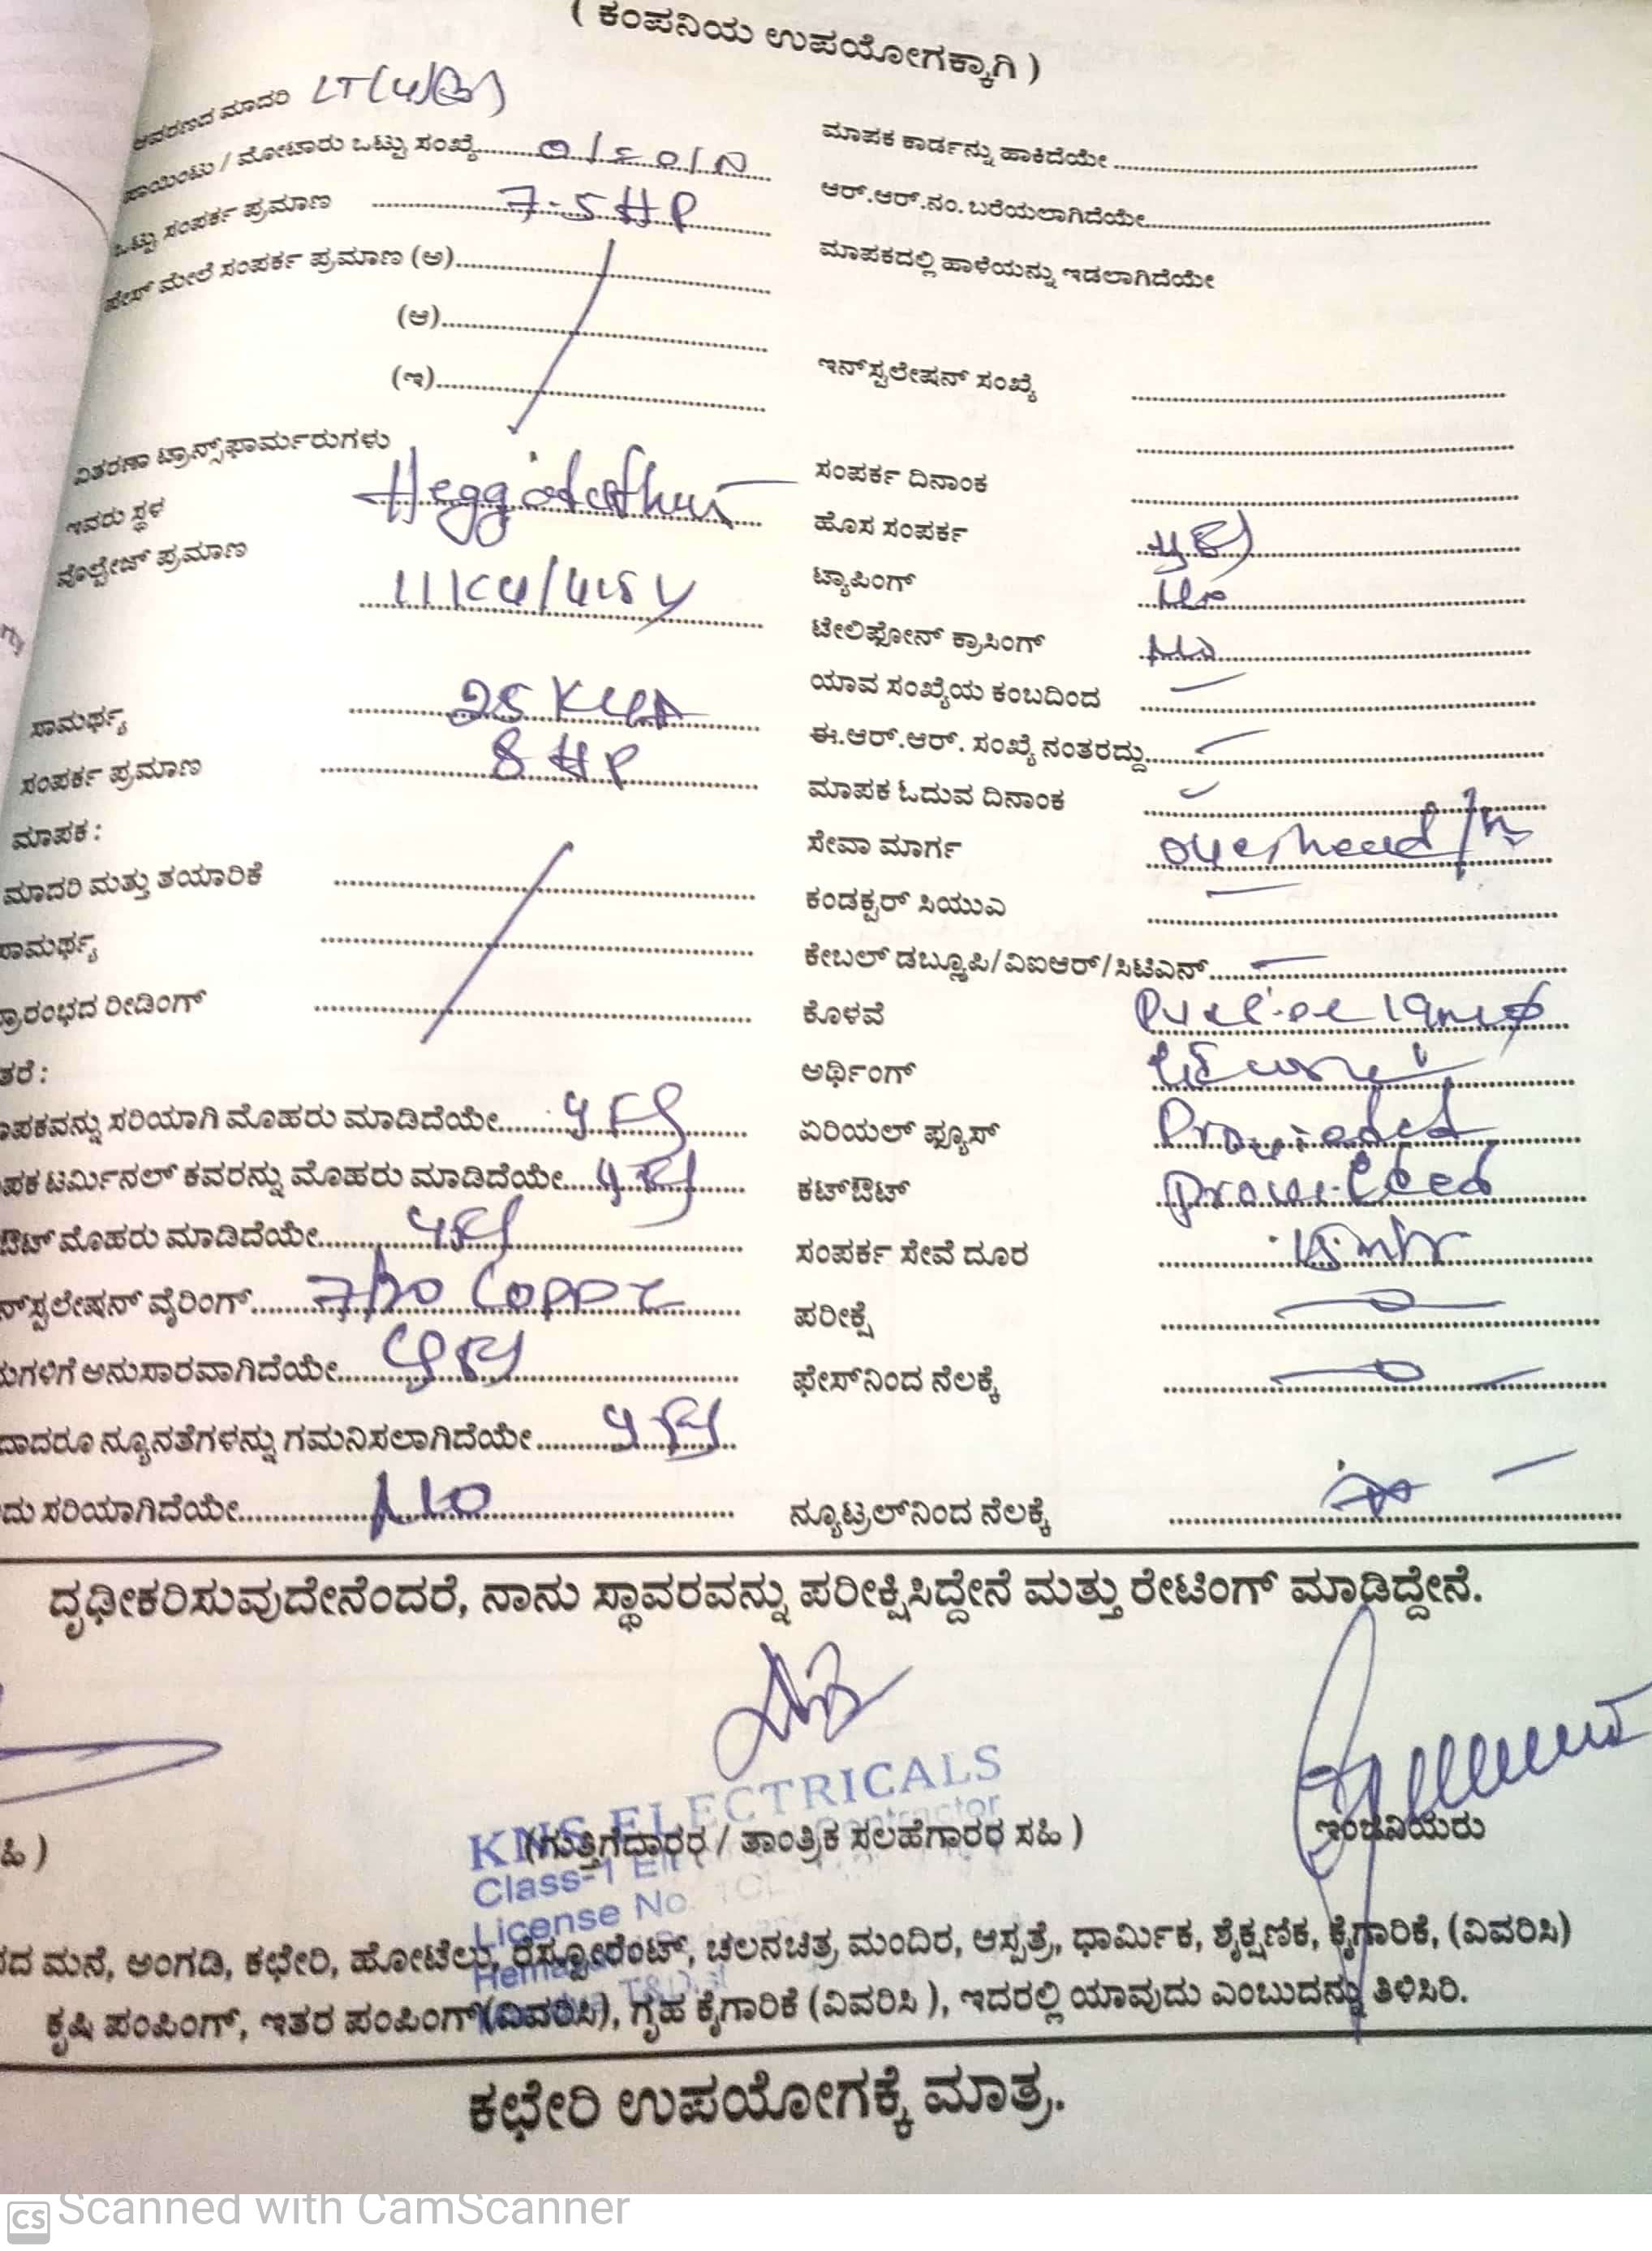 ( ಕಂಪನಿಯ ಉಪಯೋಗಕ್ಕಾಗಿ )
ಆವರಣದ ಮಾದರಿ LT(4)(B)
ಪಾಯಿಂಟು / ಮೋಟಾರು ಒಟ್ಟು ಸಂಖ್ಯೆ
ಒಟ್ಟು ಸಂಪರ್ಕ ಪ್ರಮಾಣ 7.5 HP
ಫೇಸ್ ಮೇಲೆ ಸಂಪರ್ಕ ಪ್ರಮಾಣ (ಅ)
(ಆ)
(ಇ)
ವಿತರಣಾ ಟ್ರಾನ್ಸ್‌ಫಾರ್ಮರುಗಳು
ಇವರು ಸ್ಥಳ
ವೊಲ್ಟೇಜ್ ಪ್ರಮಾಣ 11KV/415V
ಸಾಮರ್ಥ್ಯ 25 KVA
ಸಂಪರ್ಕ ಪ್ರಮಾಣ 8 HP
ಮಾಪಕ :
ಮಾದರಿ ಮತ್ತು ತಯಾರಿಕೆ
ಸಾಮರ್ಥ್ಯ
ಪ್ರಾರಂಭದ ರೀಡಿಂಗ್
ತರೆ :
ಾಪಕವನ್ನು ಸರಿಯಾಗಿ ಮೊಹರು ಮಾಡಿದೆಯೇ yes
ಪಕ ಟರ್ಮಿನಲ್ ಕವರನ್ನು ಮೊಹರು ಮಾಡಿದೆಯೇ yes
ಔಟ್ ಮೊಹರು ಮಾಡಿದೆಯೇ yes
ನ್‌ಸ್ಟಲೇಷನ್ ವೈರಿಂಗ್ 7/20 Copper
ುಗಳಿಗೆ ಅನುಸಾರವಾಗಿದೆಯೇ yes
ದಾದರೂ ನ್ಯೂನತೆಗಳನ್ನು ಗಮನಿಸಲಾಗಿದೆಯೇ yes
ದು ಸರಿಯಾಗಿದೆಯೇ NO
ಮಾಪಕ ಕಾರ್ಡನ್ನು ಹಾಕಿದೆಯೇ
ಆರ್.ಆರ್.ನಂ. ಬರೆಯಲಾಗಿದೆಯೇ
ಮಾಪಕದಲ್ಲಿ ಹಾಳೆಯನ್ನು ಇಡಲಾಗಿದೆಯೇ
ಇನ್‌ಸ್ಟಲೇಷನ್ ಸಂಖ್ಯೆ
ಸಂಪರ್ಕ ದಿನಾಂಕ
ಹೊಸ ಸಂಪರ್ಕ yes
ಟ್ಯಾಪಿಂಗ್ No
ಟೇಲಿಫೋನ್ ಕ್ರಾಸಿಂಗ್ No
ಯಾವ ಸಂಖ್ಯೆಯ ಕಂಬದಿಂದ
ಈ.ಆರ್.ಆರ್. ಸಂಖ್ಯೆ ನಂತರದ್ದು
ಮಾಪಕ ಓದುವ ದಿನಾಂಕ
ಸೇವಾ ಮಾರ್ಗ overhead
ಕಂಡಕ್ಟರ್ ಸಿಯುಎ
ಕೇಬಲ್ ಡಬ್ಲ್ಯೂಪಿ/ವಿಐಆರ್/ಸಿಟಿಎನ್
ಕೊಳವೆ
ಅರ್ಥಿಂಗ್
ಏರಿಯಲ್ ಫ್ಯೂಸ್ Provided
ಕಟ್‌ಔಟ್ provided
ಸಂಪರ್ಕ ಸೇವೆ ದೂರ 15 mtr
ಪರೀಕ್ಷೆ
ಫೇಸ್‌ನಿಂದ ನೆಲಕ್ಕೆ
ನ್ಯೂಟ್ರಲ್‌ನಿಂದ ನೆಲಕ್ಕೆ
ದೃಢೀಕರಿಸುವುದೇನೆಂದರೆ, ನಾನು ಸ್ಥಾವರವನ್ನು ಪರೀಕ್ಷಿಸಿದ್ದೇನೆ ಮತ್ತು ರೇಟಿಂಗ್ ಮಾಡಿದ್ದೇನೆ.
KNS ELECTRICALS
Class-1 Contractor
License No
ಹಿ ) (ಗುತ್ತಿಗೆದಾರರ / ತಾಂತ್ರಿಕ ಸಲಹೆಗಾರರ ಸಹಿ ) ಇಂಜಿನಿಯರು
ದ ಮನೆ, ಅಂಗಡಿ, ಕಛೇರಿ, ಹೋಟೆಲು, ರೆಸ್ಟೋರೆಂಟ್, ಚಲನಚಿತ್ರ ಮಂದಿರ, ಆಸ್ಪತ್ರೆ, ಧಾರ್ಮಿಕ, ಶೈಕ್ಷಣಿಕ, ಕೈಗಾರಿಕೆ, (ವಿವರಿಸಿ)
ಕೃಷಿ ಪಂಪಿಂಗ್, ಇತರ ಪಂಪಿಂಗ್ (ವಿವರಿಸಿ), ಗೃಹ ಕೈಗಾರಿಕೆ (ವಿವರಿಸಿ ), ಇದರಲ್ಲಿ ಯಾವುದು ಎಂಬುದನ್ನು ತಿಳಿಸಿರಿ.
ಕಛೇರಿ ಉಪಯೋಗಕ್ಕೆ ಮಾತ್ರ.
CS Scanned with CamScanner